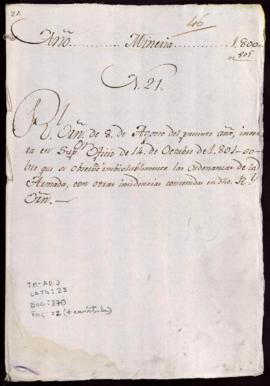 21.
46
Año . . . . . Minería . . . . . 1.800.
a 801
N. 21.
Rl. Orn. de 8. de Agosto del presente año, inserta
en Supor. Oficio de 14. de Octubre de 1.801 so-
bre que se observen inviolablemente las Ordenanzas de la
Armada, con otras incidencias contenidas en dha. Rl.
Orn.
TM-AO 3
CATA: 23
DOC: 370
FOL: 2 (+ carátula)